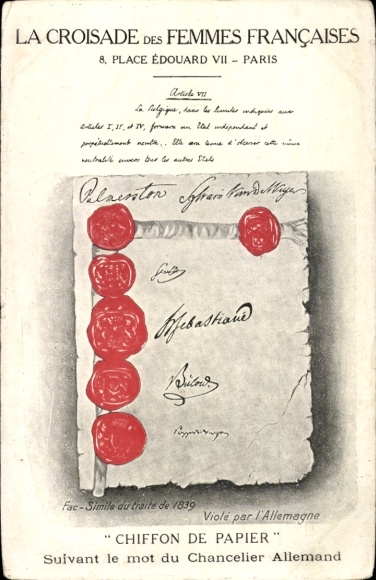 LA CROISADE DES FEMMES FRANÇAISES
8, PLACE ÉDOUARD VII – PARIS
Article VII
La Belgique, dans les limites indiquées aux
articles I, II, et IV, formera un Etat indépendant et
perpétuellement neutre. Elle sera tenue d'observer cette même
neutralité envers tous les autres Etats
Palmerston Sylvain Van de Weyer
Senfft
H Sebastiani
Bülow
Pozzo di Borgo
Fac-Simile du traité de 1839
Violé par l'Allemagne
" CHIFFON DE PAPIER "
Suivant le mot du Chancelier Allemand